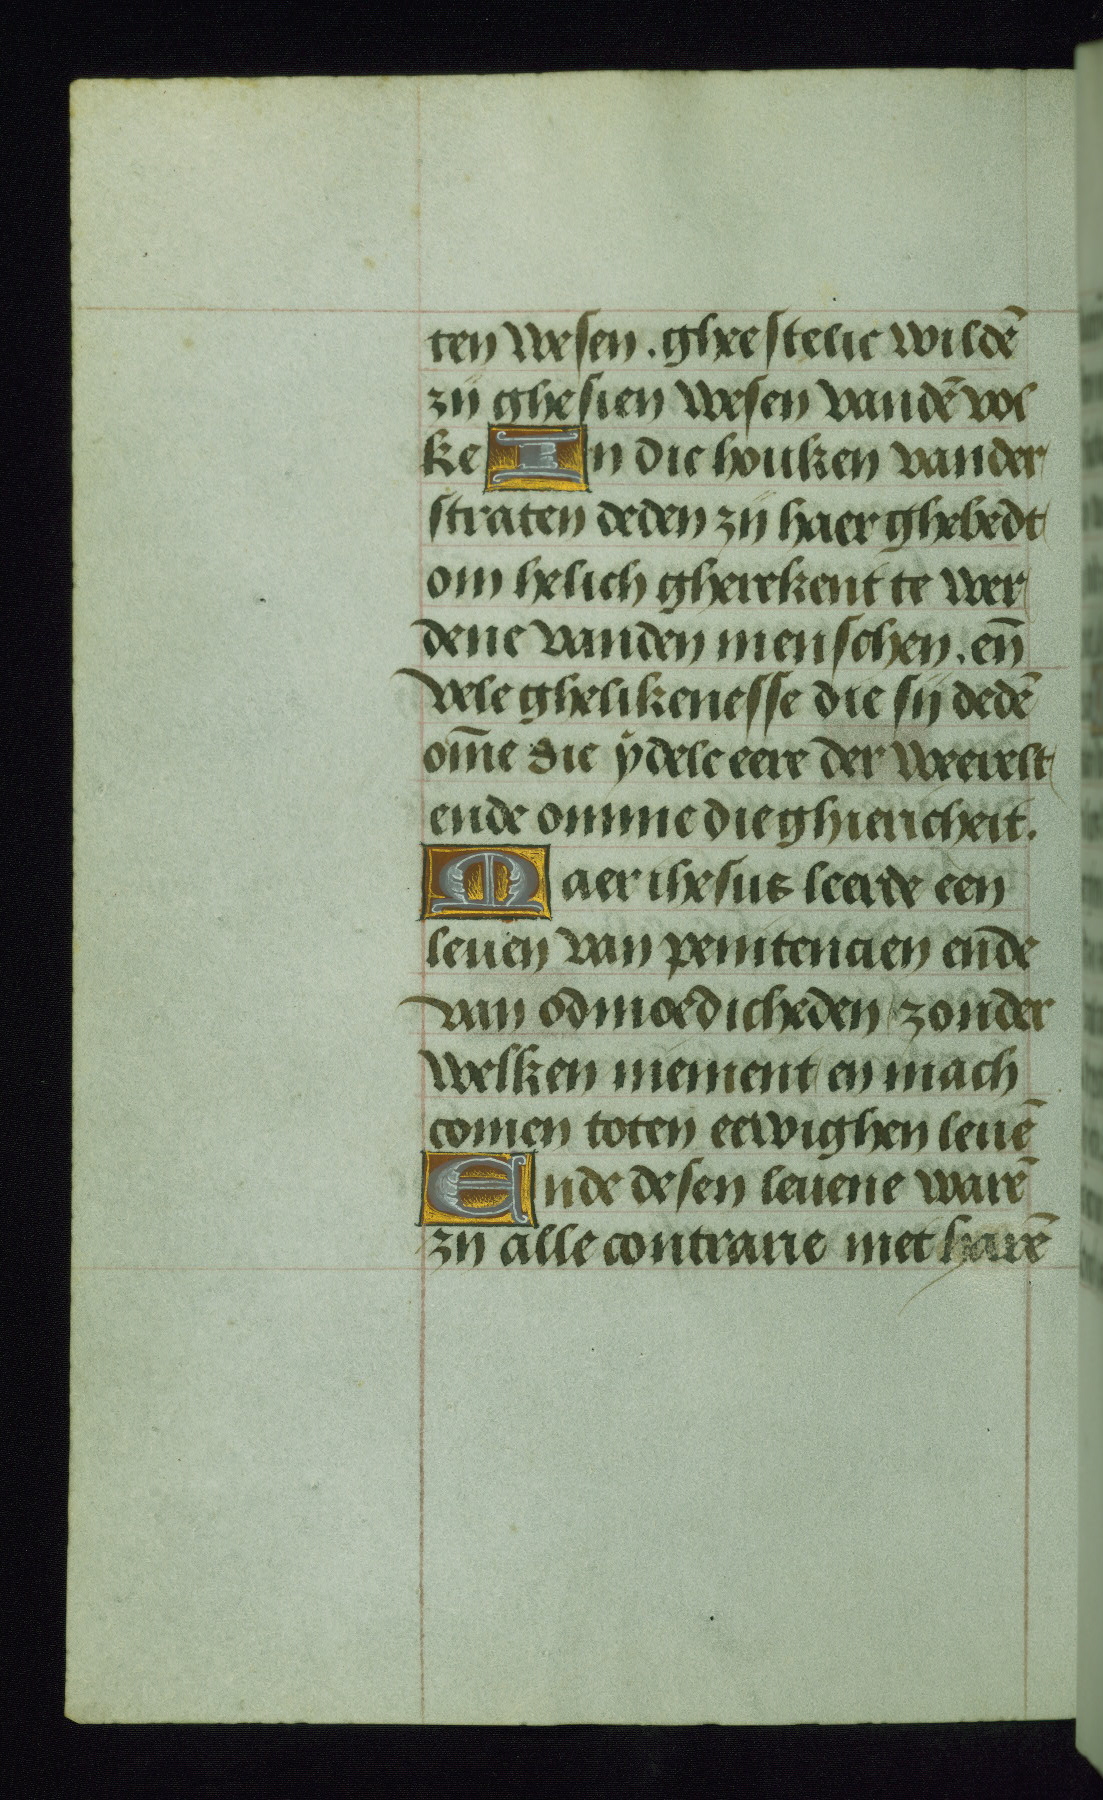 ten wesen. gheestelic wildē
zij ghesien wesen vandē vol
ke In die houken vander
straten deden zij haer ghebedt
om helich gherekent te wer
dene vanden menschen. en̄
vele ghelikenesse die sij dedē
om̄e die ydele eere der weerelt
ende omme die ghiericheit.
Maer ihesus leerde een
leuen van penitencien ende
van odmoedicheden zonder
welken niement en mach
comen toten eewighen leuē
Ende desen leuene warē
zij alle contrarie met harē